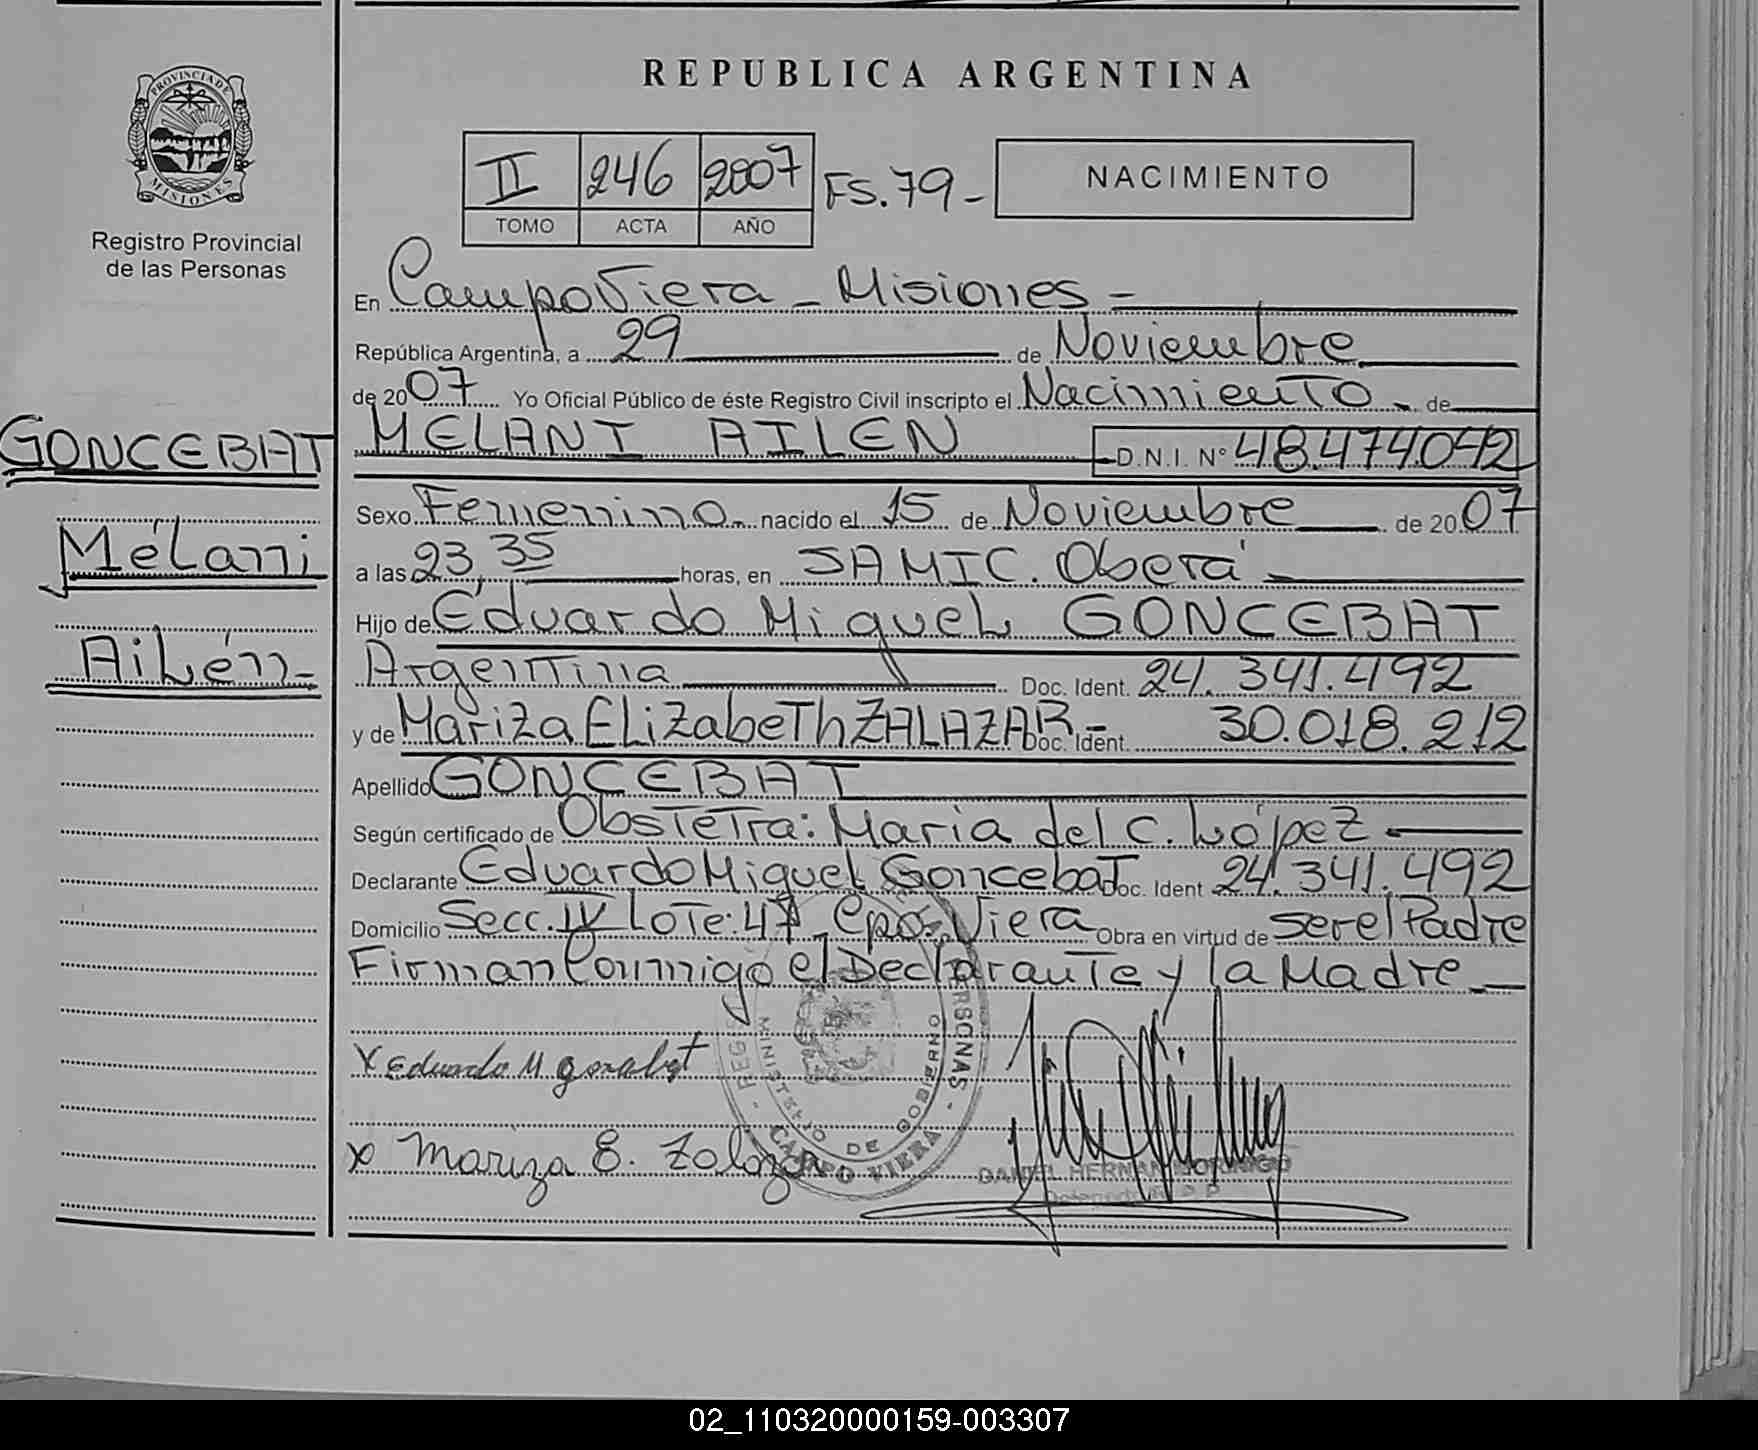 REPUBLICA ARGENTINA
PROVINCIA DE
MISIONES
Registro Provincial
de las Personas
II 246 2007 FS.79-
TOMO ACTA AÑO
NACIMIENTO
En Campo Viera - Misiones -
República Argentina, a 29 de Noviembre
de 2007 Yo Oficial Público de éste Registro Civil inscripto el Nacimiento - de
GONCEBAT
Mélani
Ailén-
MELANI AILEN D.N.I. N° 48.474.042
Sexo Femenino. nacido el 15 de Noviembre de 2007
a las 23,35 horas, en SAMIC. Oberá -
Hijo de Eduardo Miguel GONCEBAT
Argentina Doc. Ident. 24.341.492
y de Mariza Elizabeth ZALAZAR - Doc. Ident. 30.018.212
Apellido GONCEBAT
Según certificado de Obstetra: María del C. López -
Declarante Eduardo Miguel Goncebat Doc. Ident 24.341.492
Domicilio Secc. IV Lote: 47 Cpo. Viera Obra en virtud de ser el Padre
Firman Conmigo el Declarante y la Madre -
X Eduardo M goncebat
x Mariza E. Zalazar
MINISTERIO DE GOBIERNO
CAMPO VIERA
DANIEL HERNAN MORINIGO
02_110320000159-003307